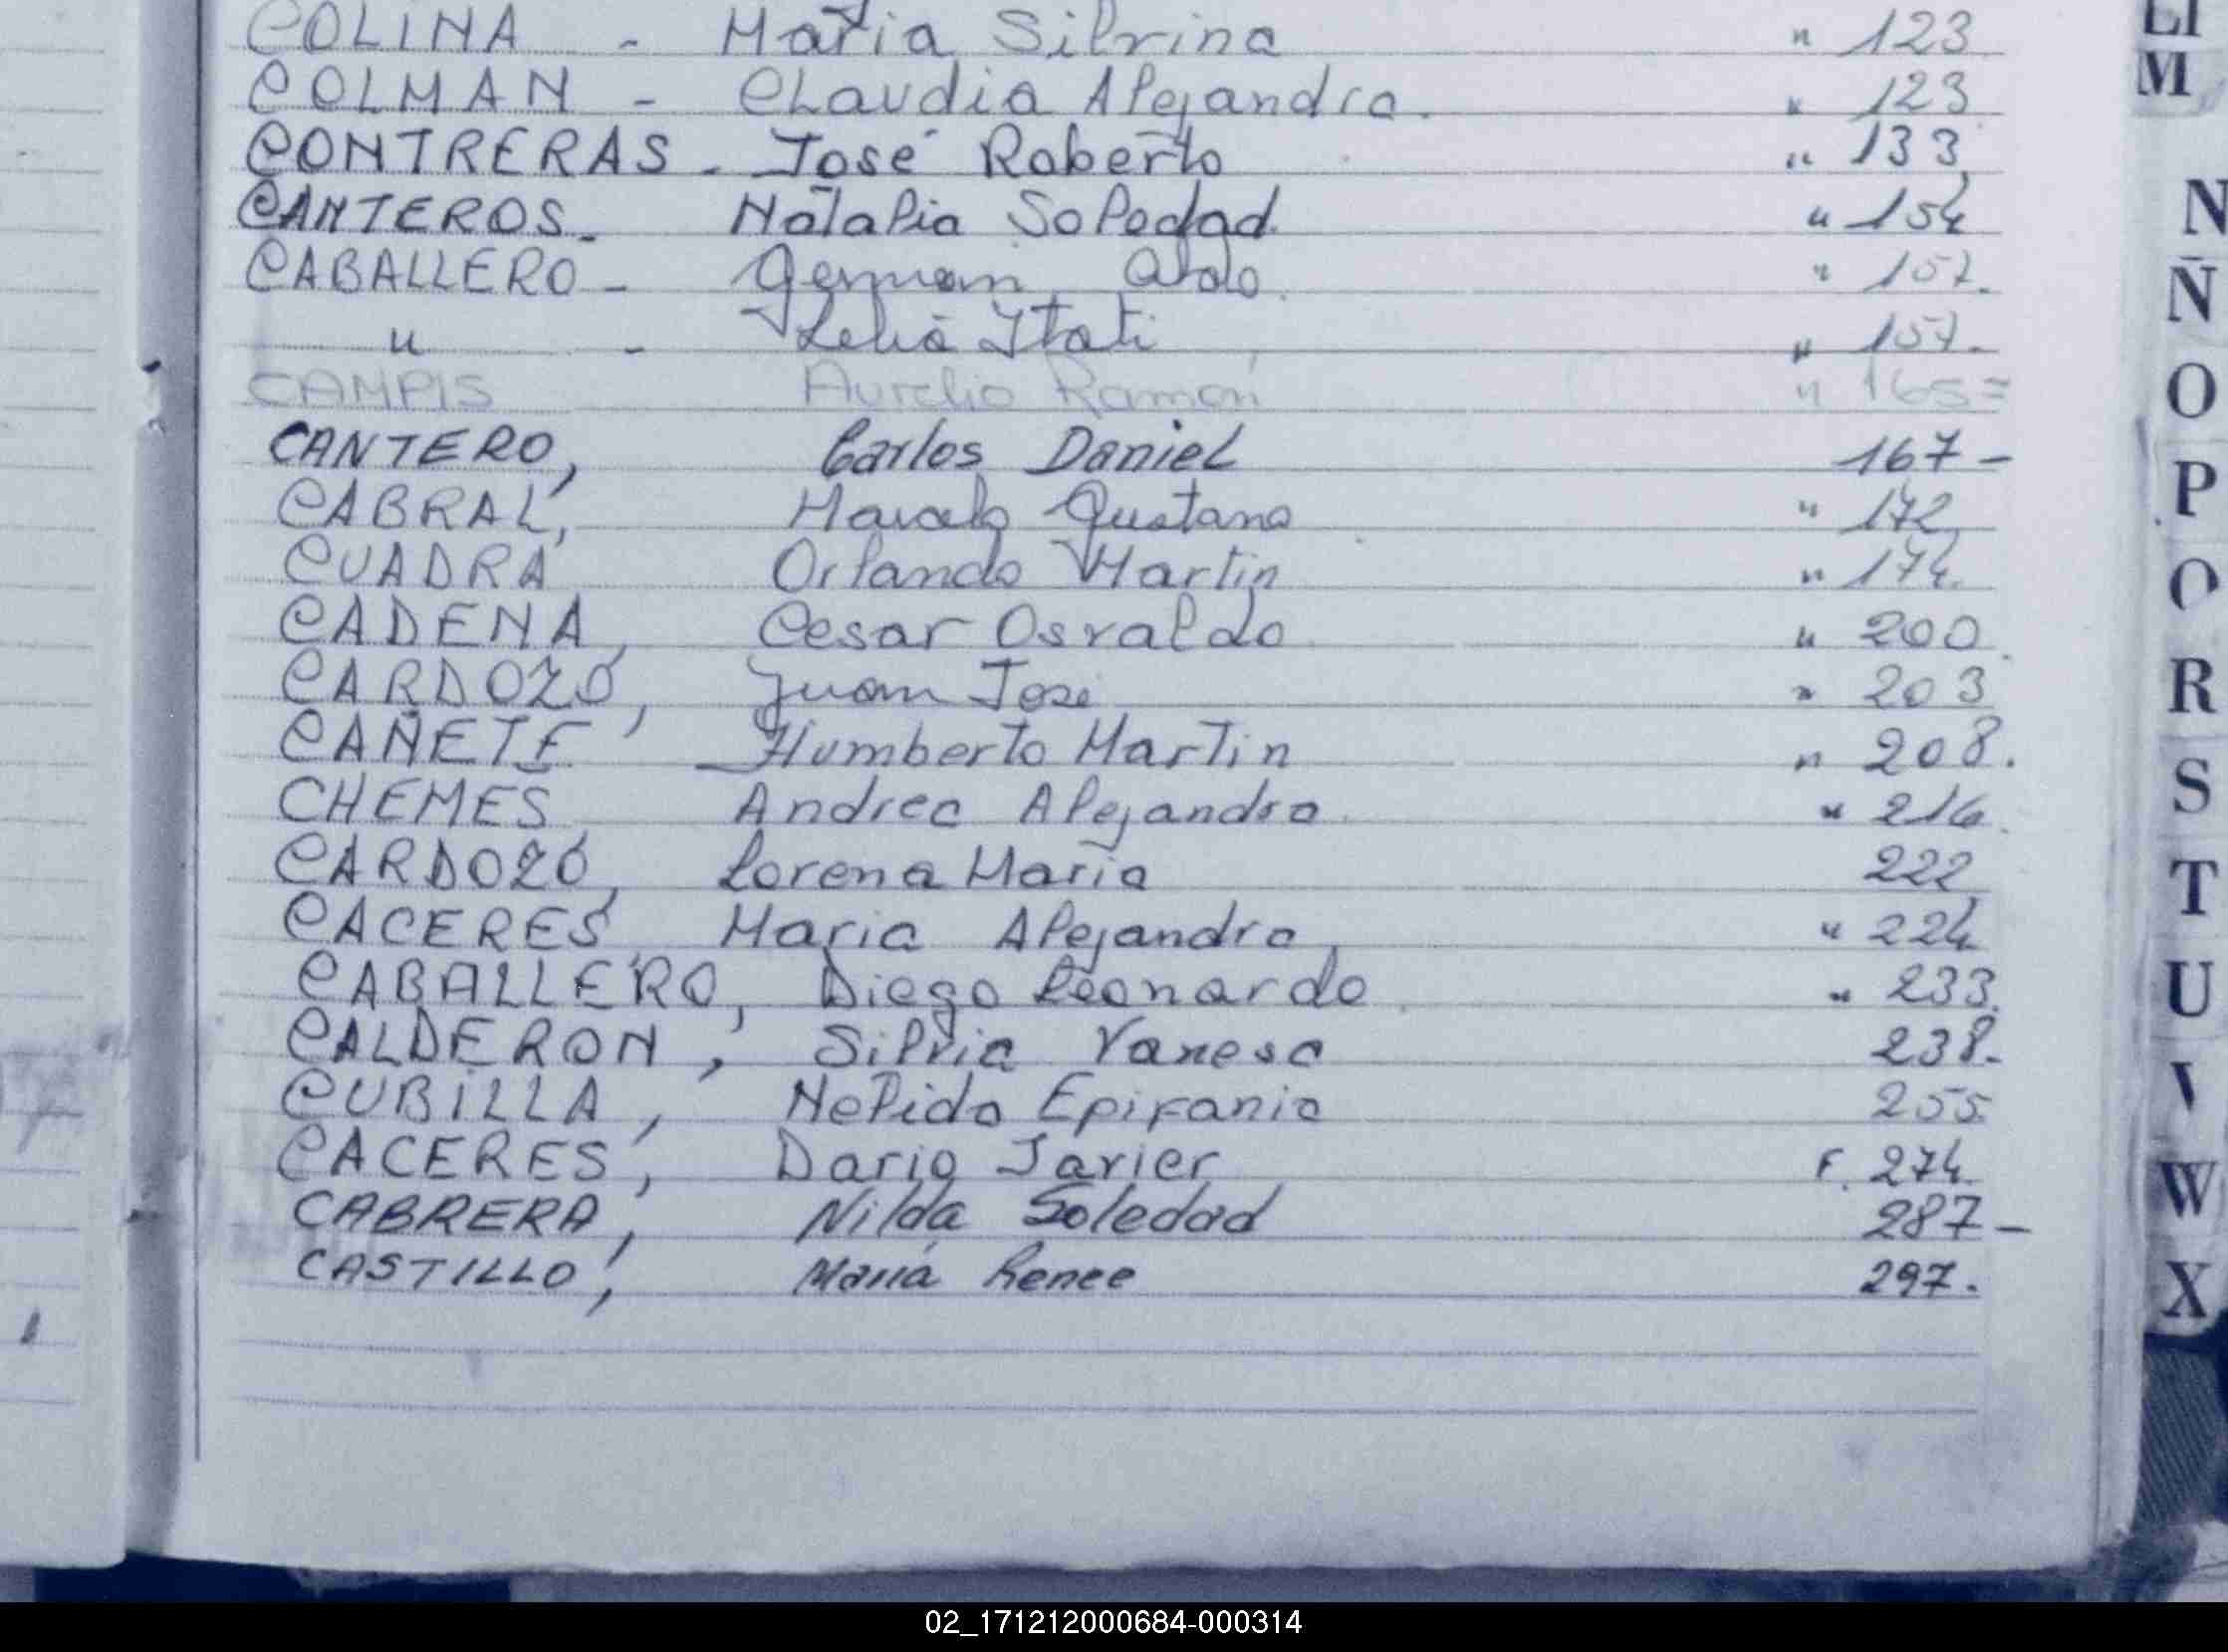 COLINA - Maria Silvina " 123
COLMAN - Claudia Alejandra. " 123
CONTRERAS - José Roberto " 133
CANTEROS - Natalia Soledad. " 154
CABALLERO - German Aldo. " 157.
" - Lelia Itati " 157.
CAMPIS Aurelio Ramón " 165=
CANTERO, Carlos Daniel 167-
CABRAL, Marcelo Gustavo " 172
CUADRA Orlando Martin " 174.
CADENA, Cesar Osvaldo " 200.
CARDOZO, Juan José " 203
CAÑETE Humberto Martin " 208.
CHEMES Andrea Alejandra. " 216.
CARDOZO, Lorena Maria 222
CACERES, Maria Alejandra " 224
CABALLERO, Diego Leonardo. " 233.
CALDERON, Silvia Vanesa 238.-
CUBILLA, Nelida Epifania 255.
CACERES, Dario Javier F. 274.
CABRERA, Nilda Soledad 287-
CASTILLO, María Renee 297.
M
N
Ñ
O
P
R
S
T
U
V
W
X
02_171212000684-000314